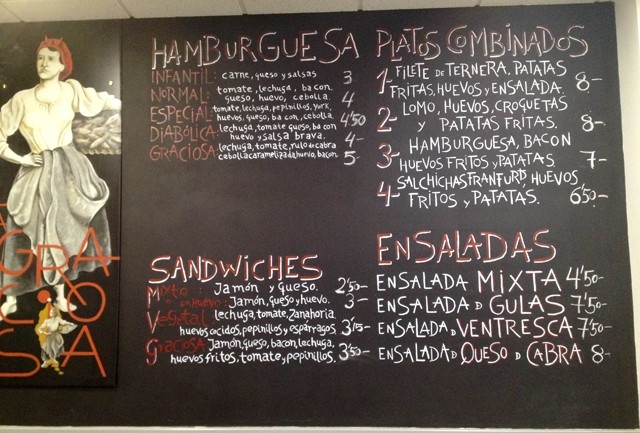 HAMBURGUESA
INFANTIL: carne, queso y salsas 3
NORMAL: tomate, lechuga, bacon, queso, huevo, cebolla. 4
ESPECIAL: tomate, lechuga, pepinillos, york, huevos, queso, bacon, cebolla. 4'50
DIABÓLICA: lechuga, tomate queso, bacon huevo y salsa brava. 4-
GRACIOSA: lechuga, tomate, rulo de cabra cebolla caramelizada huevo, bacon. 5-
SANDWICHES
Mixto: Jamón y queso. 2'50-
M con Huevo: Jamón, queso y huevo. 3-
Vegetal lechuga, tomate, Zanahoria,
huevos cocidos, pepinillos y esparragos. 3'15-
Graciosa: Jamón, queso, bacon, lechuga,
huevos fritos, tomate y pepinillos. 3'50-
PLATOS COMBINADOS
1- FILETE DE TERNERA, PATATAS
FRITAS, HUEVOS y ENSALADA. 8-
2- LOMO, HUEVOS, CROQUETAS
PATATAS FRITAS. 8-
3- HAMBURGUESA, BACON
HUEVOS FRITOS y PATATAS 7-
4- SALCHICHAS FRANFURD, HUEVOS
FRITOS y PATATAS. 6'50-
ENSALADAS
ENSALADA MIXTA 4'50-
ENSALADA D GULAS 7'50-
ENSALADA D VENTRESCA 7'50-
ENSALADA D QUESO D CABRA 8-
GRA
CIO
SA